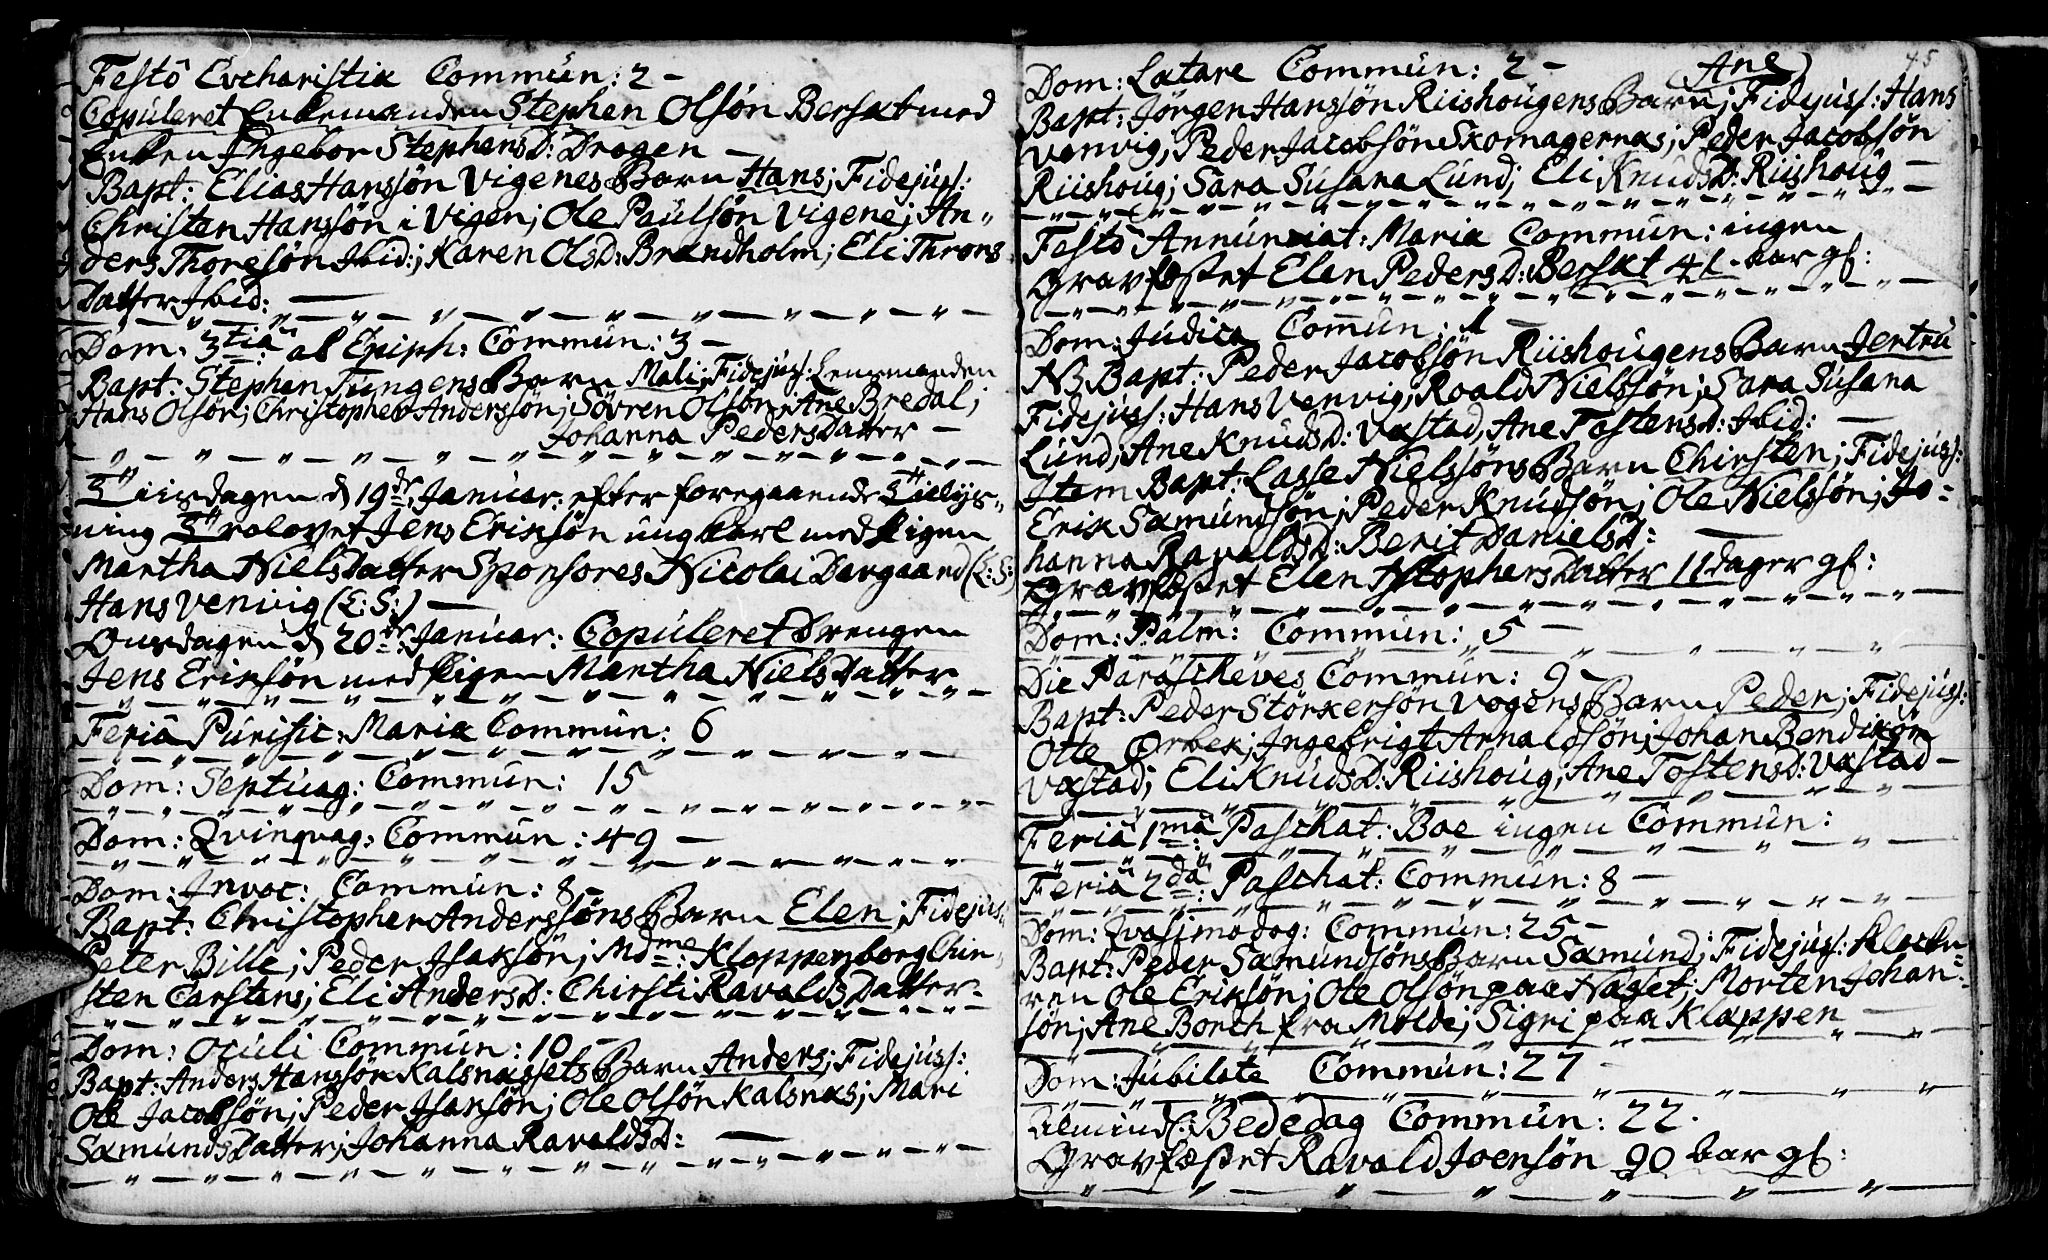 Festô Evcharistiæ Commun: 2 –
Copuleret Enkemanden Stephen Olsön Bersæt med
Enken Ingebor StephensD: Dragen –
Bapt: Elias Hanssön Vigenes Barn Hans; Fidejuss:
Christen Hanssön i Vigen; Ole Paulsön Vigene; An„
ders Thoresön Ibid:; Karen OlsD: Brandholm; Eli Throns
Datter Ibid: –
Dom: 3tiâ ab Epiph: Commun: 3 –
Bapt: Stephen Tungens Barn Mali; Fidejuss: Lensmanden
Hans Olsön; Christopher Anderssön; Sövren Olsön; Ane Bredal;
Johanna PedersDatter –
Tiirsdagen d 19de Januar: efter foregaaende Tillys„
ning Trolovet Jens Eriksön ung karl med Pigen
Martha NielsDatter Sponsores Nicolai Dargaard (L:S:)
Hans Venvig (L:S:) –
Onsdagen d 20de Januar: Copuleret Drengen
Jens Eriksön med Pigen Martha NielsDatter
Feriâ Purific: Mariæ Commun: 6
Dom: Septuag: Commun: 15
Dom: Qvinqvag: Commun: 49 –
Dom: Invoc: Commun: 8 –
Bapt: Christopher Anderssöns Barn Elen; Fidejuss:
Peter Bille; Peder Isaksön; Mdme: Kloppenborg Chir„
sten Carstens; Eli AndersD: Chirsti RavaldsDatter –
Dom: Oculi Commun: 10 –
Bapt: Anders Hanssön Kalsnæssets Barn Anders; Fidejuss:
Ole Jacobsön; Peder Isaksön; Ole Olsön Kalsnæs; Mari
SæmundsDatter; Johanna RavaldsD: –
45
Dom: Lætare Commun: 2 – Ane
Bapt: Jörgen Hanssön Riishougens Barn; Fidejuss: Hans
Venvig; Peder Jacobsön Skomagernæs; Peder Jacobsön
Riishoug; Sara Susana Lund; Eli KnudsD: Riishoug –
Festô Annunciat: Mariæ Commun: ingen
Gravfæstet Elen PedersD: Bersæt 41 aar gl:
Dom: Judica Commun: 1 –
NB Bapt: Peder Jacobsön Riishougens Barn Jertru
Fidejuss: Hans Venvig; Roald Nielssön; Sara Susana
Lund; Ane KnudsD: Væstad, Ane TostensD: Ibid: –
Item Bapt: Lasse Nielssöns Barn Chirsten; Fidejuss:
Erik Sæmundsön; Peder Knudsön; Ole Nielssön; Jo„
hanna RavaldsD: Berit DanielsD: –
Gravfæstet Elen StophersDatter 11 dager gl:
Dom: Palm: Commun: 5 –
Die Parascheves Commun: 9 –
Bapt: Peder Störkersön Vogens Barn Peder; Fidejuss:
Otte Ørbek; Ingebrigt Arnaldsön; Johan Bendixön
Væstad; Eli KnudsD: Riishoug; Ane TostensD: Væstad –
Feriâ 1mâ Paschat: Boe ingen Commun:
Feriâ 2dâ: Paschat: Commun: 8 –
Dom: Qvasimodog: Commun: 25 –
Bapt: Peder Sæmundsöns Barn Sæmund; Fidejuss: Klocke„
ren Ole Eriksön; Ole Olsön paa Næset; Morten Johan„
sön; Ane Borch fra Molde; Sigri paa Kloppen –
Dom: Jubilate Commun: 27 –
Almindl: Bededag Commun: 22.
Gravfæstet Ravald Joensön 90 aar gl: